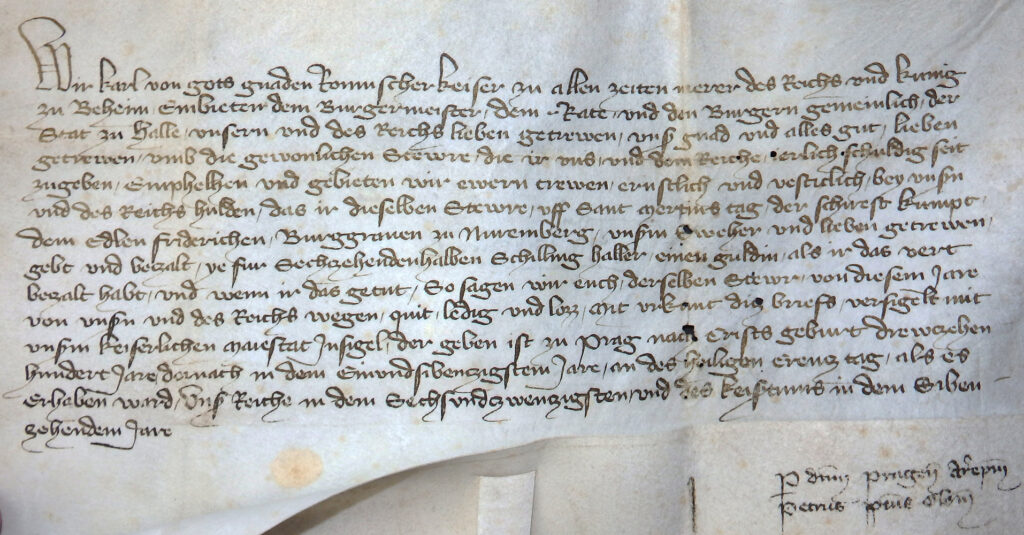 Wir Karl von gots gnaden Romischer keiser zu allen zeiten merer des Reichs und kunig
zu Beheim Embieten dem Burgermeister, dem Rate, und den Burgern gemeinlich, der
Stat zu Halle, unsern und des Reichs lieben getrewen, uns' gnad und alles gut, lieben
getrewen, umb die gewonlichen Stewre, die ir uns, und dem Reiche, ierlich schuldig seit
zugeben, Emphelhen und gebieten wir ewern trewen, ernstlich und vesticlich, bey uns'n
und des Reichs hulden, das ir dieselben Stewre, uff Sant Mertins tag, der schirest kumpt,
dem Edlen friderichen, Burggraven zu Nuremberg, uns'm Sweher und lieben getrewen,
gebt und bezalt, ye fur Sechzehendenhalben Schilling haller, einen guldin, als ir das vert
bezalt habt, und wenn ir das getut, So sagen wir euch, derselben Stewr, von diesem Jare
von uns'n und des Reichs wegen, quit, ledig und loz, mit urkunt diz briefs, versigelt mit
uns'm keiserlichen maiestat Insigel, der geben ist zu Prag nach crists geburt drewczehen
hundert Jare, dornach in dem Einundsibenzigstem Jare, an des heiligen creucz tag, als es
Erhaben ward, Uns' Reiche in dem Sechsundzwenzigsten, und des keis'tums in dem Siben
zehendem Jare
P dnm pragen Arepm
Petrus